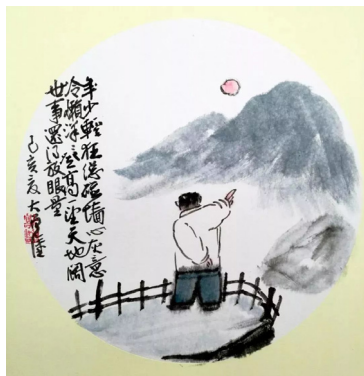 年少輕狂总碰墙心灰意
冷懒洋洋登高一望天地阔
世事還得放眼量
己亥夏大